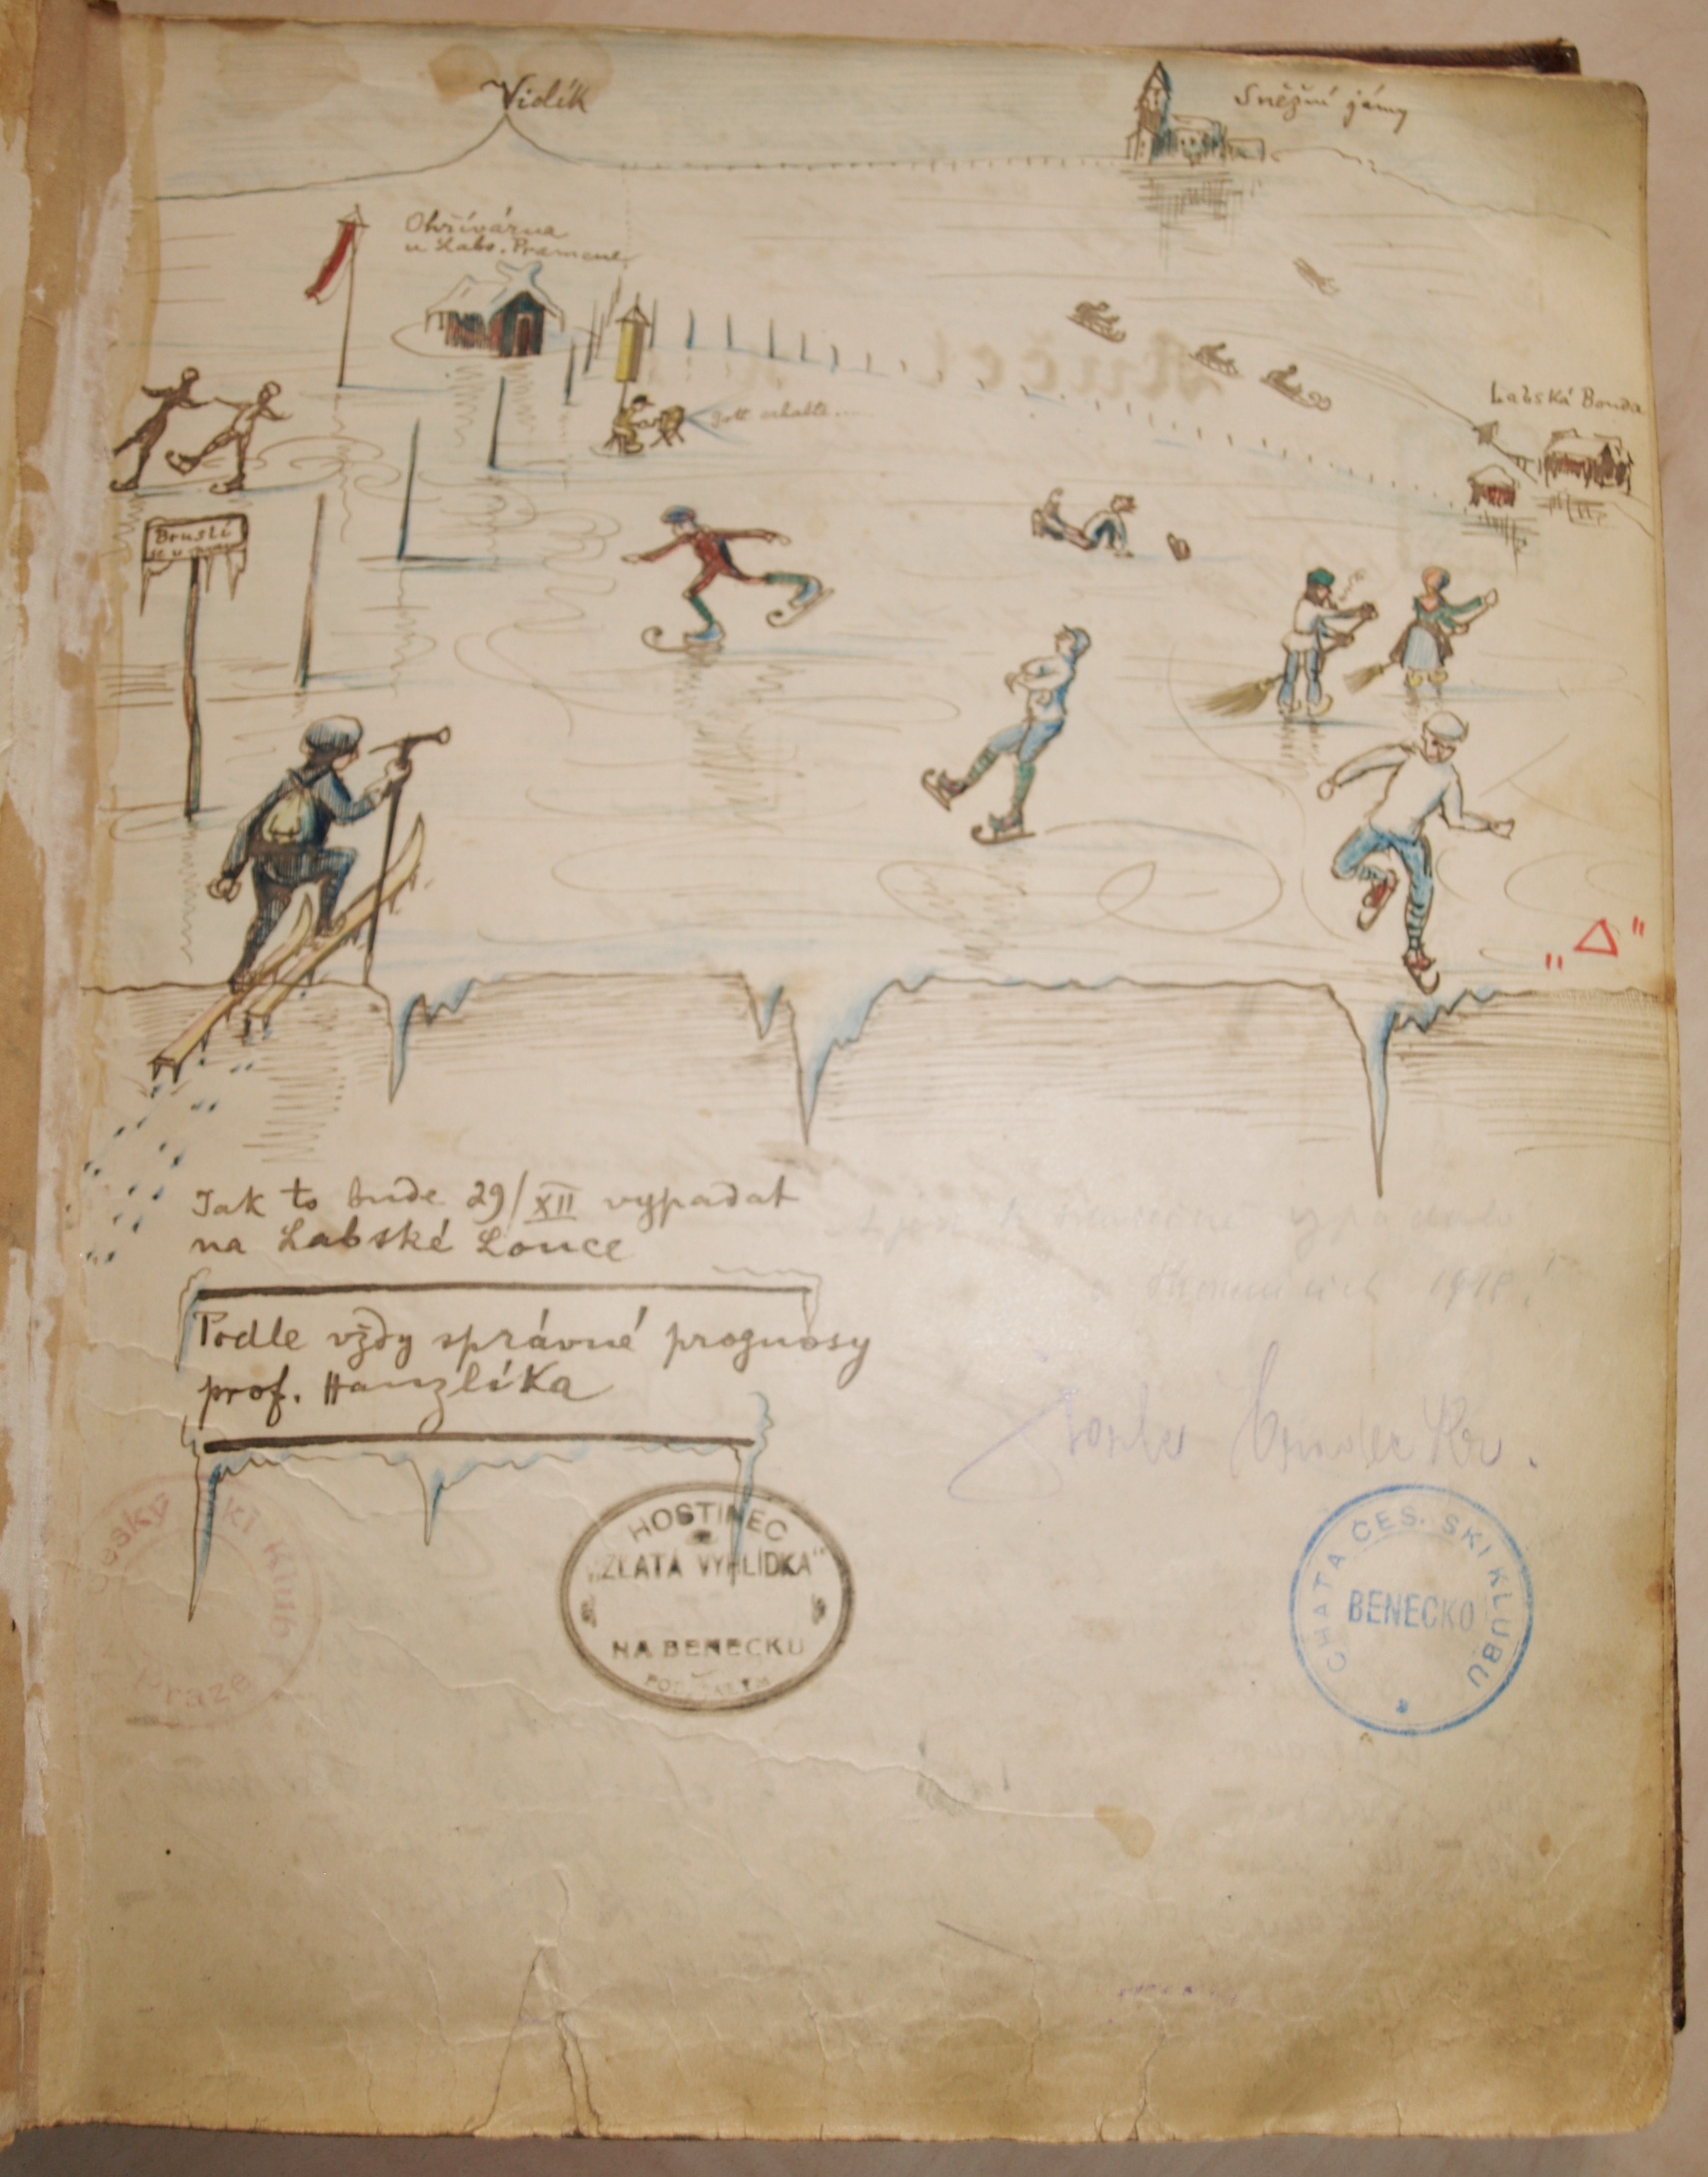 Vidlík
Sněžní jámy
Ohřívárna
u Labs. Pramene
Gott erhalte....
Labská Bouda
Jak to bude 29/XII vypadat
na Labské Louce
Podle vždy správné prognosy
prof. Hanzlíka
1918!
Český Ski Klub
Praze
HOSTINEC
„ZLATÁ VYHLÍDKA"
NA BENECKU
CHATA ČES. SKI KLUBU
BENECKO